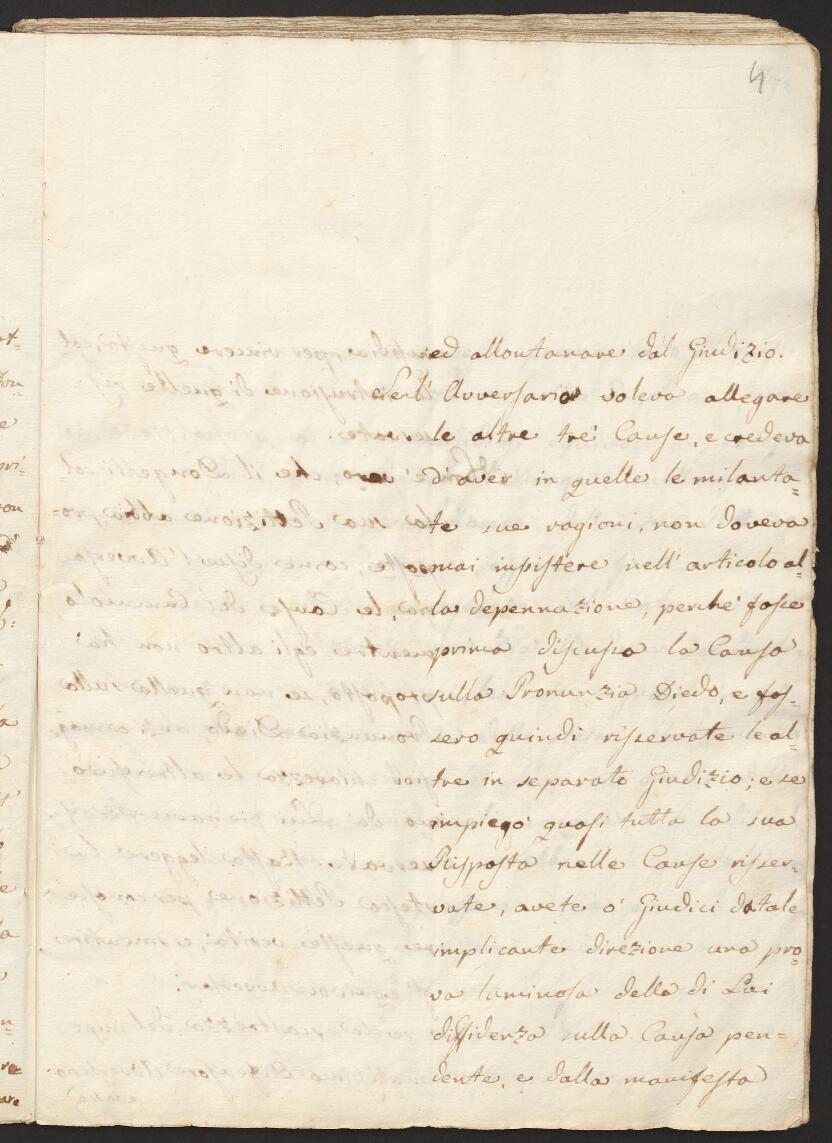 4
ed allontanare dal Giudizio.
Se l' Avversario voleva allegare
le altre trè Cause, e credeva
d'aver in quelle le milanta=
te sue ragioni, non doveva
mai insistere nell' articolo al=
la depennazione, perchè fosse
prima discussa la Causa
sulla Pronunzia Diedo, e fos=
sero quindi risservate le al=
tre in separato Giudizio; e se
impiegò quasi tutta la sua
Risposta nelle Cause risser=
vate, avete ò Giudici da tale
implicante direzione una pro=
va luminosa della di Lui
diffidenza sulla Causa pen=
dente, e dalla manifesta